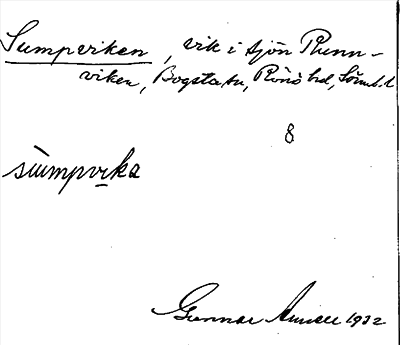 Sumpviken, vik i sjön Runn-
viken, Bogsta sn, Rönö hd, Sörml. l.
8
sùmpvika
Gunnar Amnell 1932